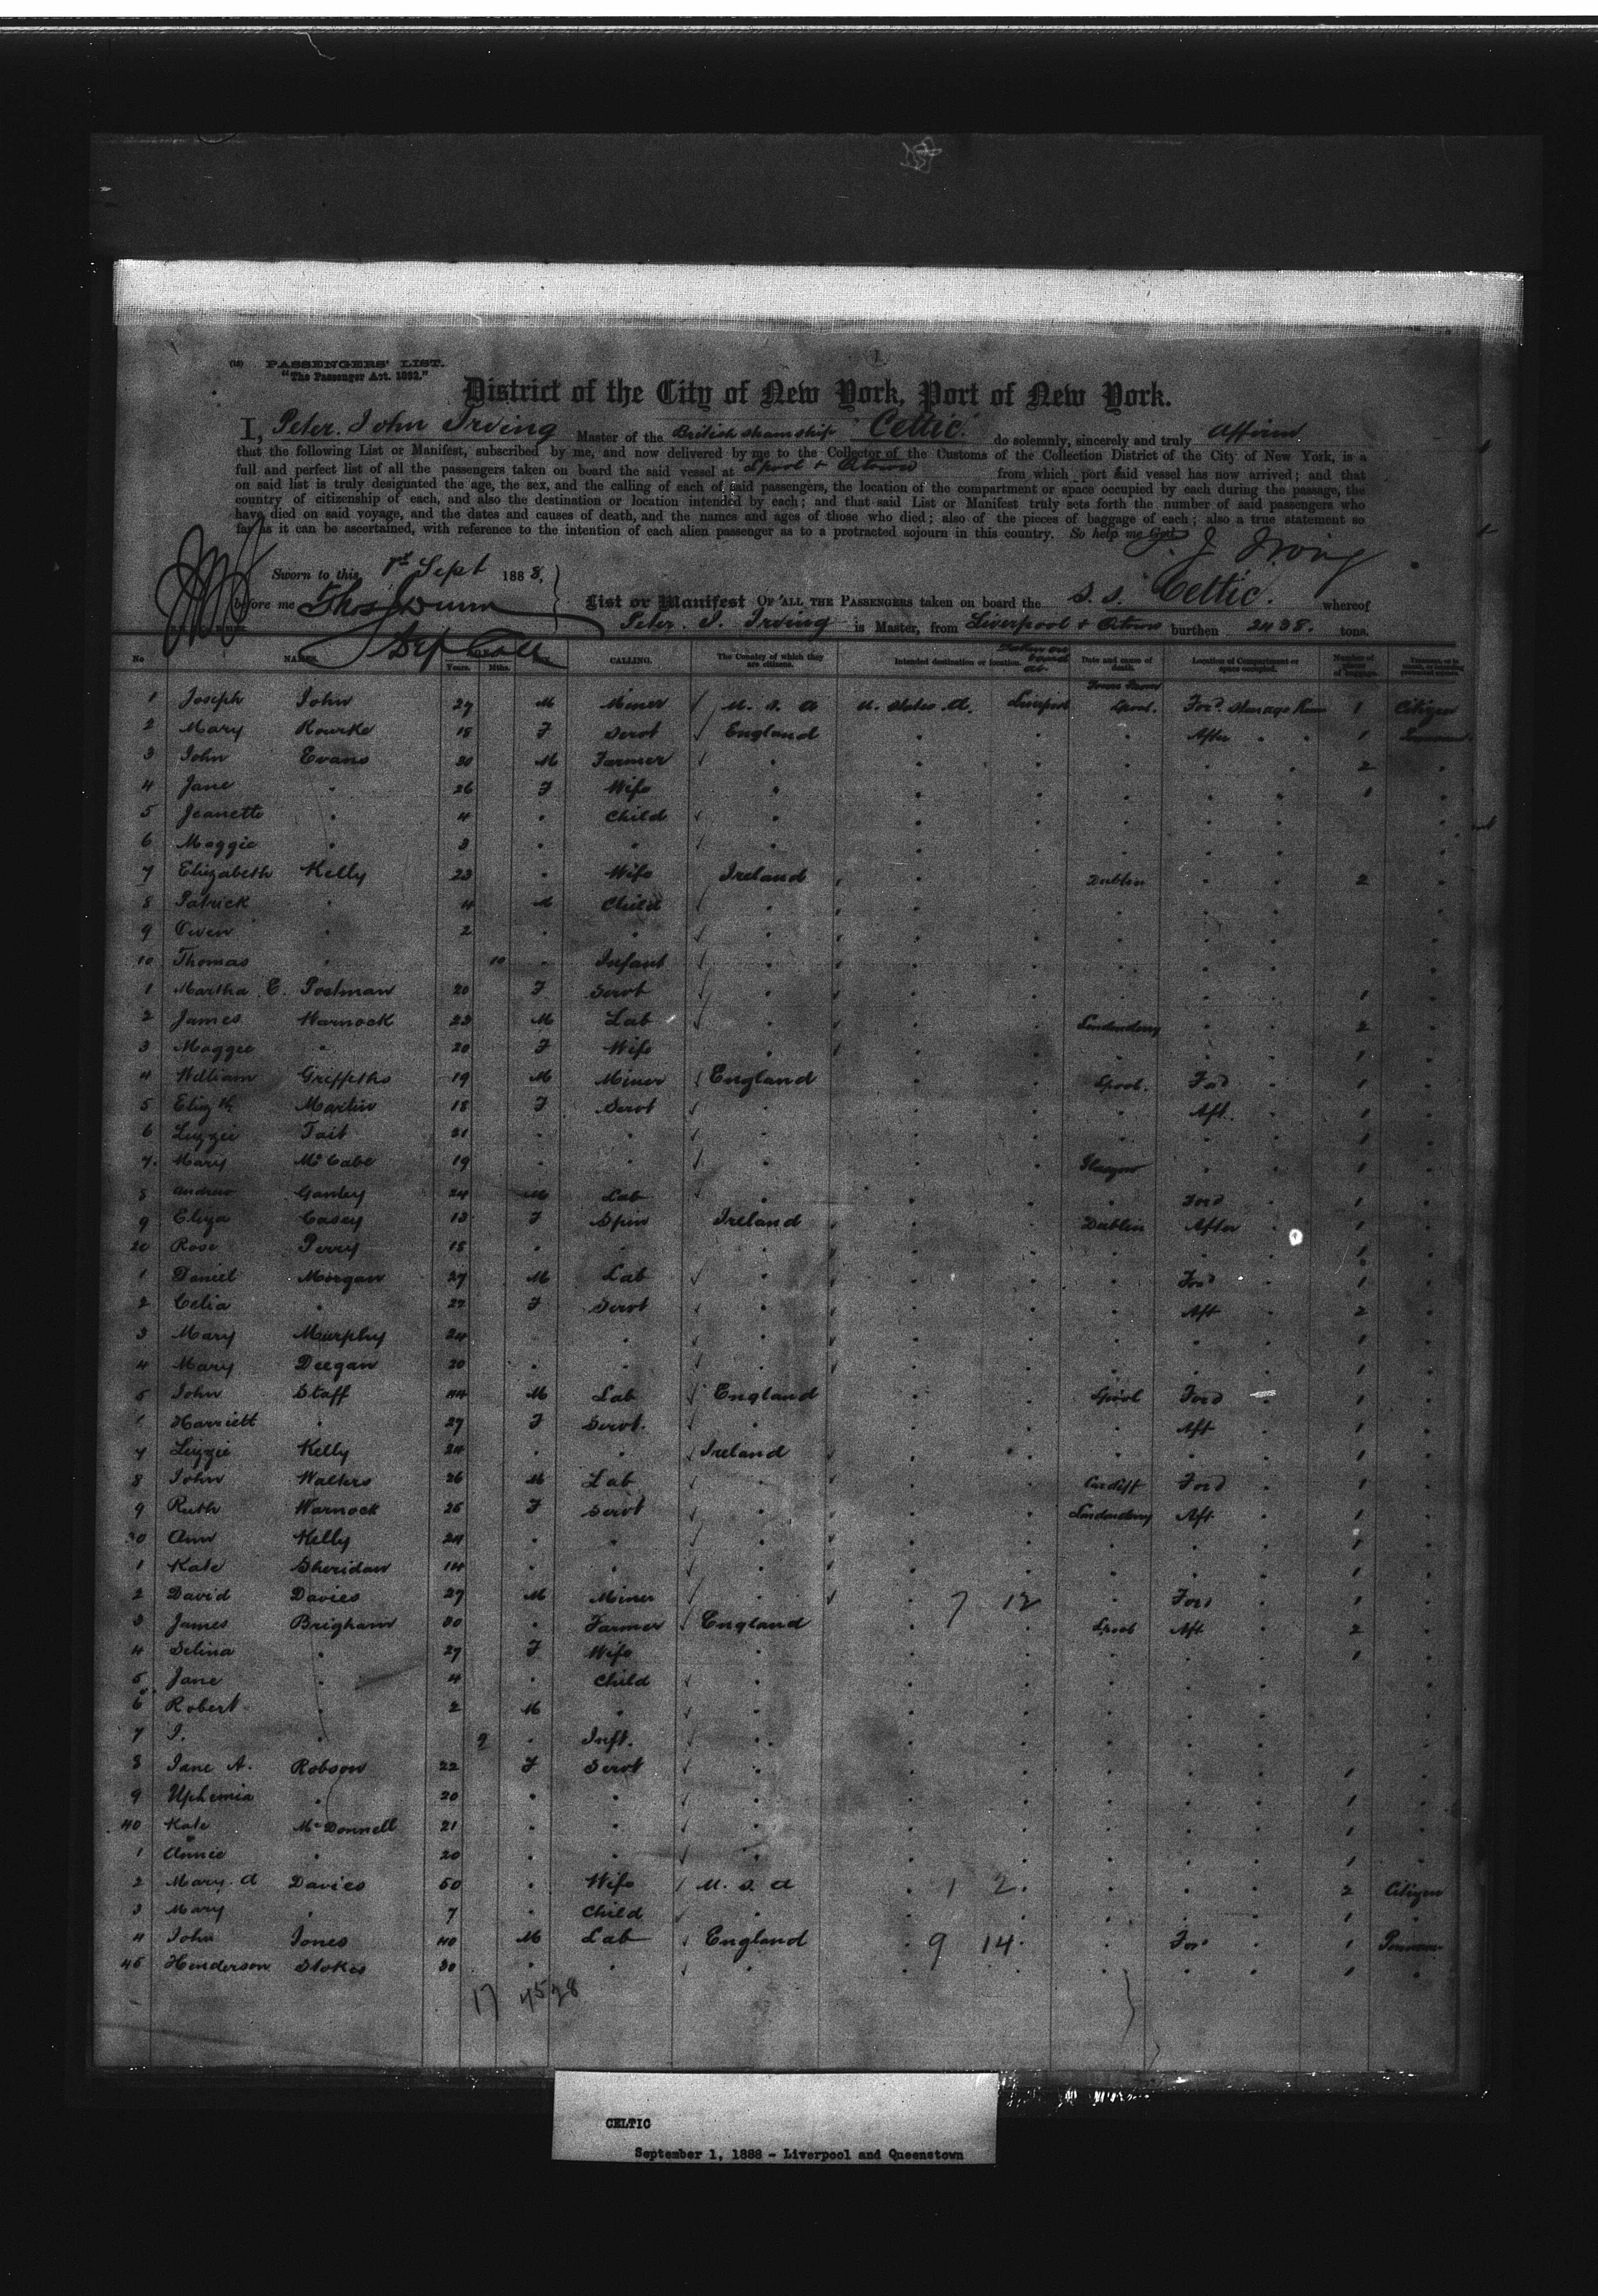 (18) PASSENGERS' LIST.
"The Passenger Act. 1882."
District of the City of New York, Port of New York.
I, Peter John Irving Master of the British steamship Celtic. do solemnly, sincerely and truly affirm
that the following List or Manifest, subscribed by me, and now delivered by me to the Collector of the Customs of the Collection District of the City of New York, is a
full and perfect list of all the passengers taken on board the said vessel at Lpool + Qtown from which port said vessel has now arrived; and that
on said list is truly designated the age, the sex, and the calling of each of said passengers, the location of the compartment or space occupied by each during the passage, the
country of citizenship of each, and also the destination or location intended by each; and that said List or Manifest truly sets forth the number of said passengers who
have died on said voyage, and the dates and causes of death, and the names and ages of those who died; also of the pieces of baggage of each; also a true statement so
far as it can be ascertained, with reference to the intention of each alien passenger as to a protracted sojourn in this country. So help me God. P. J. Irving
Sworn to this 1st Sept 1888,
before me Thos Dunn
Dep Coll
List or Manifest OF ALL THE PASSENGERS taken on board the S. S. Celtic. whereof
Peter. J. Irving is Master, from Liverpool + Qtown burthen 2438. tons.
No NAMES. Years. Mths. CALLING. The Country of which they are citizens. Intended destination or location. Taken on board at Date and cause of death. Location of Compartment or space occupied. Number of pieces of baggage.
1 Joseph John 27 M Miner U. S. A U. States. A. Liverpool Lpool. Ford. Steerage 1 Citizen
2 Mary Rourke 18 F Servt England " " " After " " 1
3 John Evans 30 M Farmer " " " " " " 2 "
4 Jane " 26 F Wife " " " " " " 1 "
5 Jeanette " 4 " Child " " " " " " "
6 Maggie " 3 " " " " " " " " "
7 Elizabeth Kelly 23 " Wife Ireland " " Dublin " " 2 "
8 Patrick " 4 M Child " " " " " " "
9 Owen " 2 " " " " " " " " "
10 Thomas " 10 " Infant " " " " " " "
1 Martha E. Postman 20 F Servt " " " " " " 1 "
2 James Warnock 23 M Lab " " " Londonderry " " 2 "
3 Maggie " 20 F Wife " " " " " " 1 "
4 William Griffiths 19 M Miner England " " Lpool. Ford " 1 "
5 Elizth Martin 18 F Servt " " " " Aft. " 1 "
6 Lizzie Tait 21 " " " " " " " " 1 "
7. Mary McCabe 19 " " " " " Glasgow " " 1 "
8 Andrew Ganley 24 M Lab " " " " Ford " 1 "
9 Eliza Casey 13 F Spin Ireland " " Dublin After " 1 "
20 Rose Perry 18 " " " " " " " " 1 "
1 Daniel Morgan 27 M Lab " " " " Ford " 1 "
2 Celia " 22 F Servt " " " " Aft " 2 "
3 Mary Murphy 24 " " " " " " " 1 "
4 Mary Deegan 20 " " " " " " " " 1 "
5 John Staff 44 M Lab England " " Lpool Ford " 1 "
Harriett " 27 F Servt. " " " " Aft " 1 "
7 Lizzie Kelly 24 " " Ireland " " " " " 1 "
8 John Walters 26 M Lab " " " Cardiff Ford " 1 "
9 Ruth Warnock 25 F Servt " " " Londonderry Aft. " 1 "
30 Ann Kelly 24 " " " " " " " " 1 "
1 Kate Sheridan 14 " " " " " " " " 1 "
2 David Davies 27 M Miner " " 7 12 " Ford " 1 "
3 James Brigham 30 " Farmer England " " Lpool Aft " 2 "
4 Selina " 27 F Wife " " " " " " 1 "
5 Jane " 4 " Child " " " " " " "
6 Robert " 2 M " " " " " " " "
7 J. " 9 " Inft. " " " " " " "
8 Jane A. Robson 22 F Servt " " " " " " 1 "
9 Uphemia " 20 " " " " " " " " 1 "
40 Kate McDonnell 21 " " " " " " " " 1 "
1 Annie " 20 " " " " " " " " 1 "
2 Mary. A Davies 50 " Wife U. S. A " 1 2. " " " 2 Citizen
3 Mary " 7 " Child " " " " " " 1 "
4 John Jones 40 M Lab England " 9 14. " For " 1
45 Henderson Stokes 30 " " " " " " " " 1 "
17 4528
CELTIC
September 1, 1888 - Liverpool and Queenstown